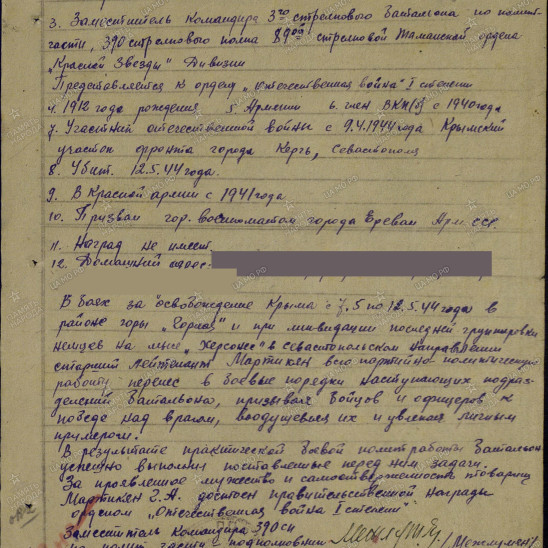 3. Заместитель Командира 3го стрелкового Батальона по полит-
части, 390 стрелкового полка 89ой стрелковой Таманской ордена
„Красной Звезды" Дивизии
Представляется к ордену „отечественная война" I степени
4. 1912 года рождения 5 Армении 6. член ВКП(б) с 1940 года
7. Участник отечественной войны с 9.4.1944 года Крымский
участок фронта города Керчь, Севастополь
8. Убит. 12.5.44 года.
9. В Красной армии с 1941 года
10. Призван гор. военкоматом города Ереван Арм. ССР.
11. Наград не имеет
12. Домашний адрес:
В боях за освобождение Крыма с 7.5 по 12.5.44 года в
районе горы „Горная" и при ликвидации последней группировки
немцев на мысе „Херсонес" в севастопольском направлении
старший лейтенант Мартикян всю партийно политическую
работу перенес в боевые порядки наступающих подраз-
делений Батальона, призывал бойцов и офицеров к
победе над врагом, воодушевляя их и увлекая личным
примером.
В результате практической боевой политработы Батальон
успешно выполнил поставленные перед ним задачи.
За проявленное мужество и самоотверженность товарищ
Мартикян г.А. достоен правительственной награды
орденом „Отечественная война I степени"
Заместитель Командира 390 сп
по полит части - подполковник